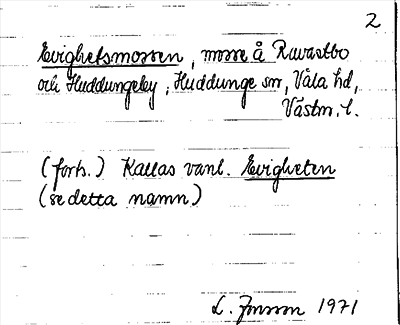 2
Evighetsmossen, mosse å Ruvastbo
och Huddungeby, Huddunge sn, Våla hd,
Västm. l.
(forts.) Kallas vanl. Evigheten
(se detta namn)
L. Jonsson 1971